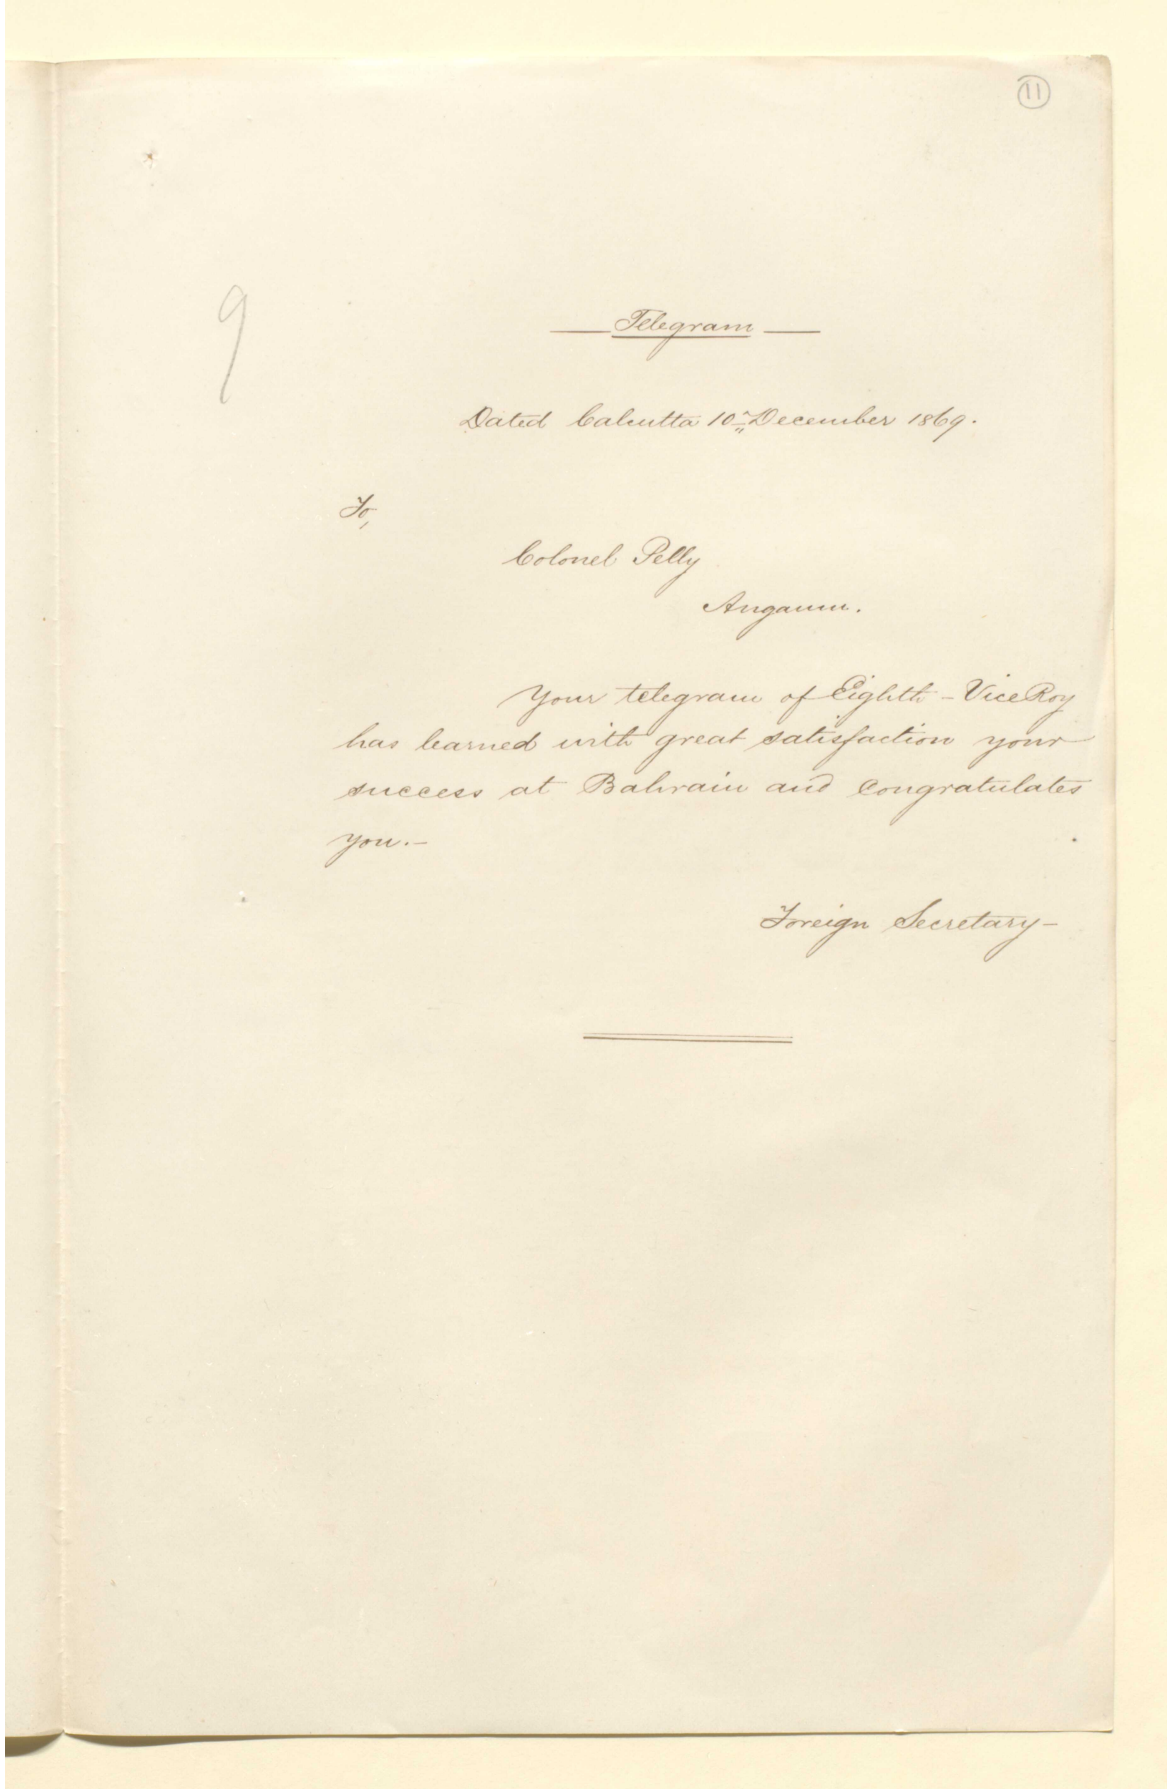 11
9
Telegram
Dated Calcutta 10th December 1869.
To,
Colonel Pelly
Angaum.
Your telegram of Eighth - ViceRoy
has learned with great satisfaction your
success at Bahrain and congratulates
you.-
Foreign Secretary-